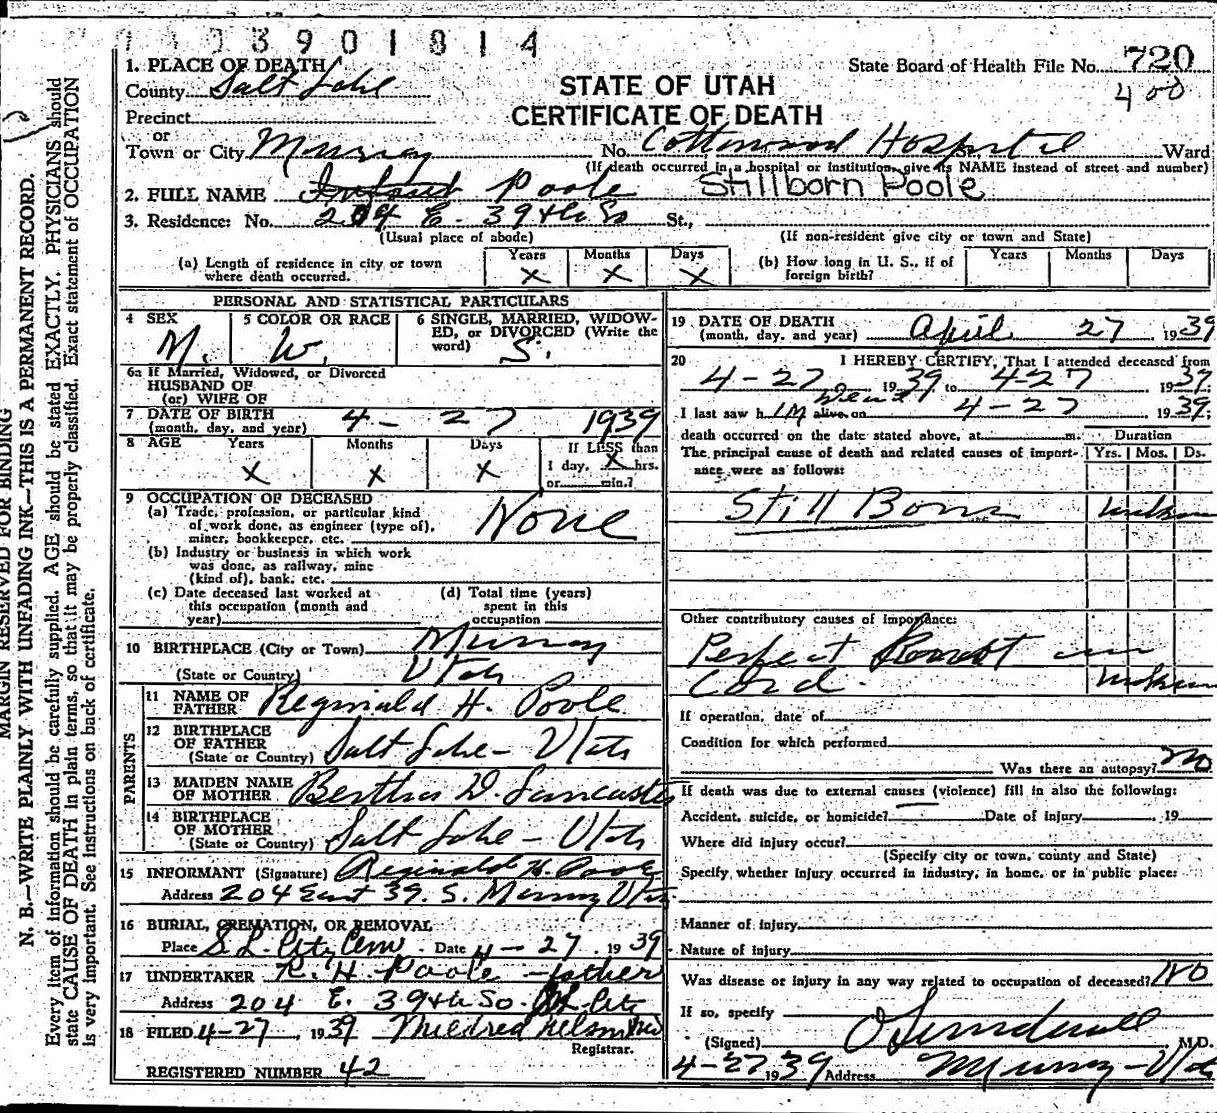 3901814
1. PLACE OF DEATH
County Salt Lake
State Board of Health File No. 720
400
STATE OF UTAH
CERTIFICATE OF DEATH
Precinct
or
Town or City Murray No. Cottonwood Hospital St., Ward
(If death occurred in a hospital or institution, give its NAME instead of street and number)
2. FULL NAME Infant Poole Stillborn Poole
3. Residence: No. 204 E. 39th So St.,
(Usual place of abode) (If non-resident give city or town and State)
(a) Length of residence in city or town where death occurred. Years X Months X Days X
(b) How long in U. S., if of foreign birth? Years Months Days
PERSONAL AND STATISTICAL PARTICULARS
4 SEX M.
5 COLOR OR RACE W.
6 SINGLE, MARRIED, WIDOW-
ED, or DIVORCED (Write the
word) S.
6a If Married, Widowed, or Divorced
HUSBAND OF
(or) WIFE OF
7 DATE OF BIRTH 4 - 27 1939
(month, day, and year)
8 AGE Years X Months X Days X
If LESS than
1 day, X hrs.
or min.?
9 OCCUPATION OF DECEASED
(a) Trade, profession, or particular kind
of work done, as engineer (type of),
miner, bookkeeper, etc. None
(b) Industry or business in which work
was done, as railway, mine
(kind of), bank, etc.
(c) Date deceased last worked at
this occupation (month and
year)
(d) Total time (years)
spent in this
occupation
10 BIRTHPLACE (City or Town) Murray
(State or Country) Utah
PARENTS
11 NAME OF
FATHER Reginald H. Poole
12 BIRTHPLACE
OF FATHER
(State or Country) Salt Lake - Utah
13 MAIDEN NAME
OF MOTHER Bertha D. Lancaster
14 BIRTHPLACE
OF MOTHER
(State or Country) Salt Lake - Utah
15 INFORMANT (Signature) Reginald H. Poole
Address 204 East 39. S. Murray Utah
16 BURIAL, CREMATION, OR REMOVAL
Place S. L. City Cem. Date 4 - 27 1939
17 UNDERTAKER R. H. Poole - father
Address 204 E. 39th So. S L City
18 FILED 4-27, 1939 Mildred Nelson
Registrar.
REGISTERED NUMBER 42
19 DATE OF DEATH
(month, day, and year) April 27 1939
20 I HEREBY CERTIFY, That I attended deceased from
4-27 1939 to 4-27 1939;
Dead
I last saw him alive on 4-27 1939;
death occurred on the date stated above, at m. Duration
The principal cause of death and related causes of import-
ance were as follows: Yrs. Mos. Ds.
Still Born
Other contributory causes of importance:
Perfect in
Cord.
If operation, date of
Condition for which performed
Was there an autopsy? No
If death was due to external causes (violence) fill in also the following:
Accident, suicide, or homicide? Date of injury 19
Where did injury occur?
(Specify city or town, county and State)
Specify, whether injury occurred in industry, in home, or in public place:
Manner of injury
Nature of injury
Was disease or injury in any way related to occupation of deceased? No
If so, specify
(Signed) M.D.
4-27 1939 Address Murray - Utah
MARGIN RESERVED FOR BINDING
N. B.—WRITE PLAINLY WITH UNFADING INK—THIS IS A PERMANENT RECORD.
Every item of information should be carefully supplied. AGE should be stated EXACTLY. PHYSICIANS should
state CAUSE OF DEATH in plain terms, so that it may be properly classified. Exact statement of OCCUPATION
is very important. See instructions on back of certificate.